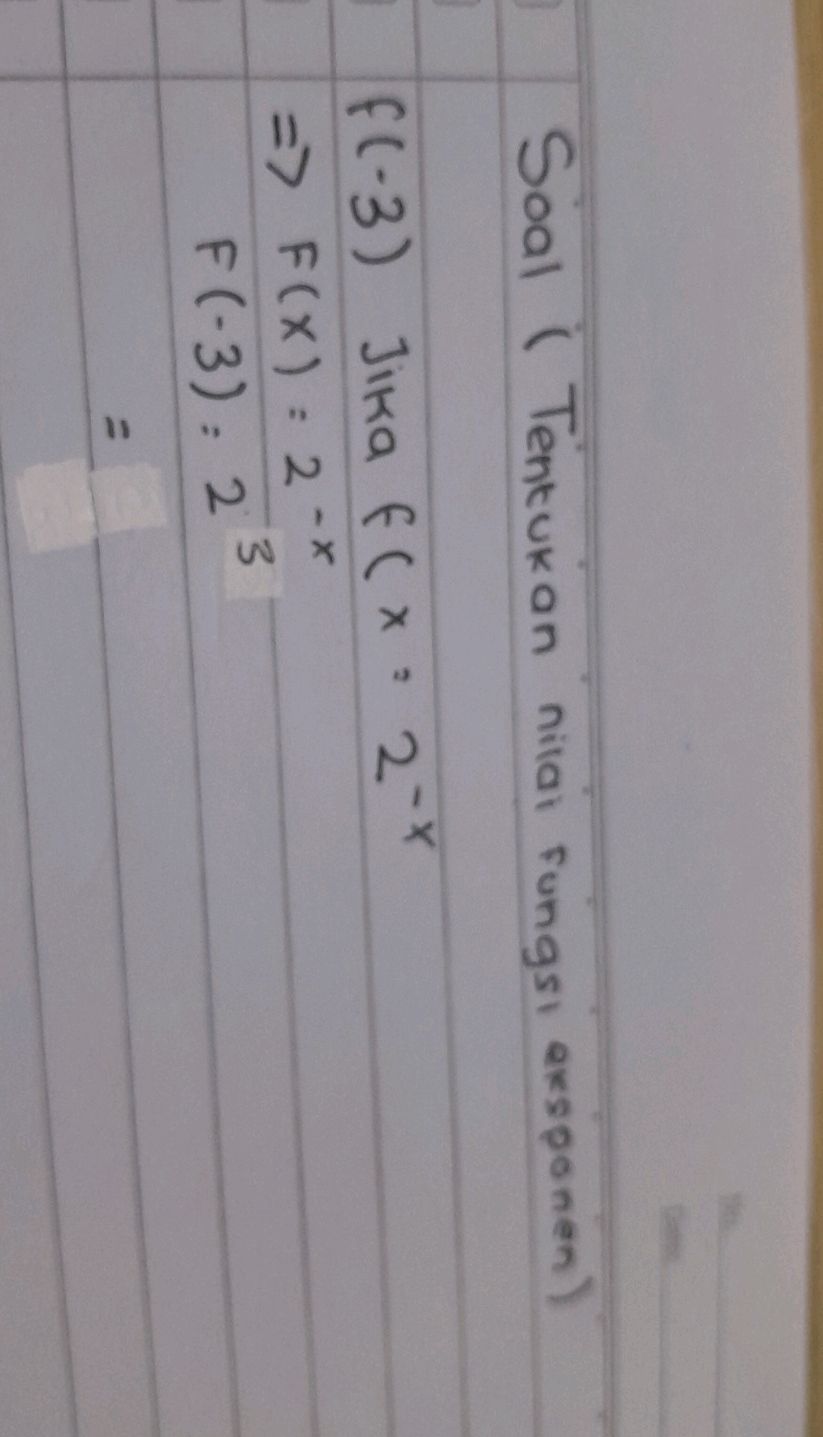 Soal ( Tentukan nilai fungsi eksponen)
f(-3) Jika f(x = 2^-x
=> F(x) = 2^-x
F(-3) = 2^3
=